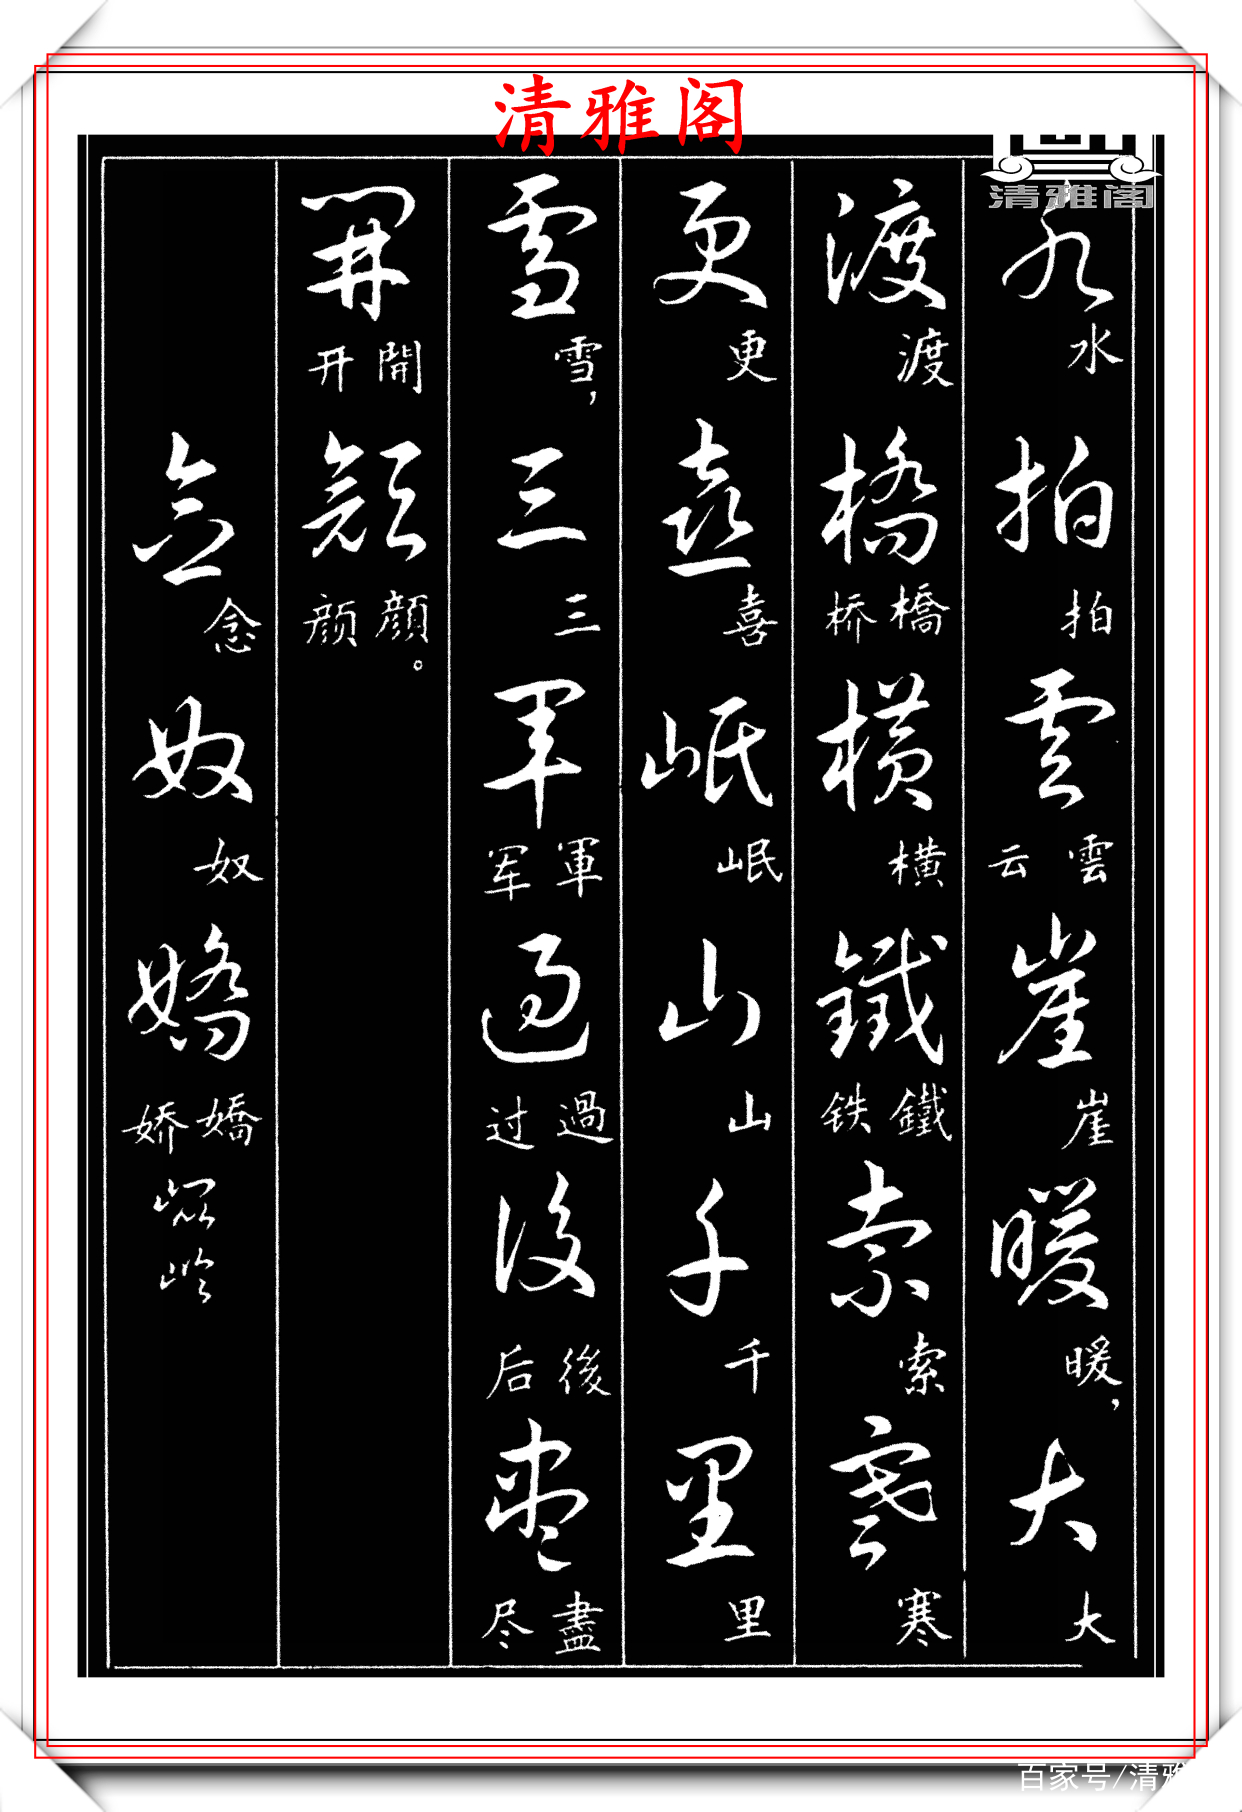 清雅阁
清雅阁
水 水 拍 拍 雲 雲 云 崖 崖 暖 暖, 大 大
渡 渡 橋 橋 桥 橫 横 鐵 鐵 铁 索 索 寒 寒
更 更 喜 喜 岷 岷 山 山 千 千 里 里
雪 雪, 三 三 軍 軍 军 過 過 过 後 後 后 盡 盡 尽
開 開 开 顔 顔 颜。
念 念 奴 奴 嬌 嬌 娇
百家号/清雅